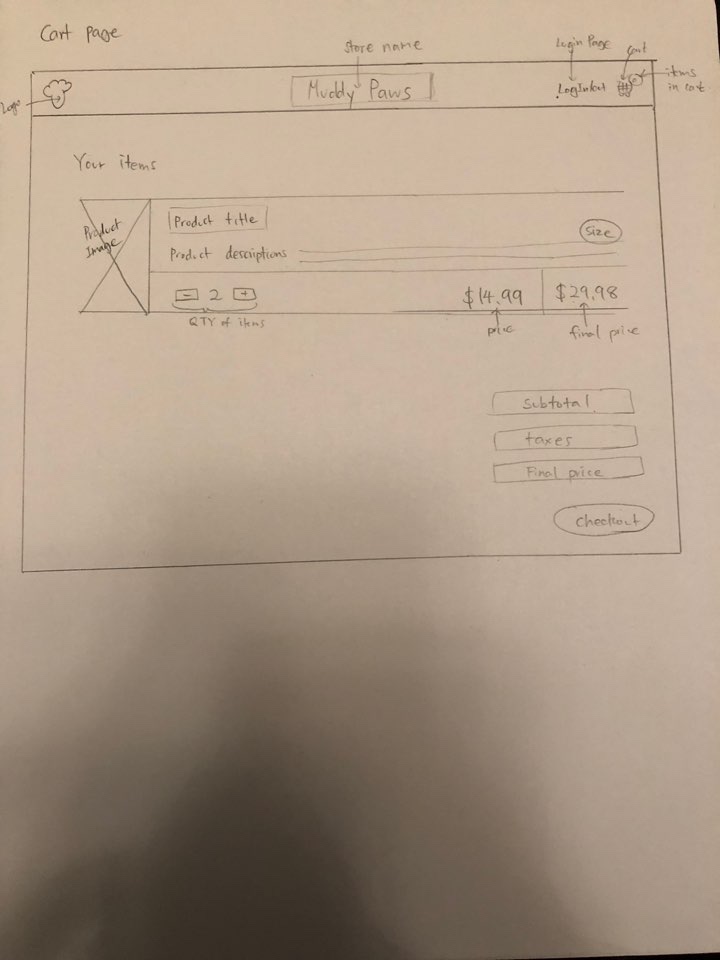 Cart page
store name
Login Page
cart
items
in cart
Logo
Muddy Paws
Your items
Product
Image
Product title
size
Product descriptions
- 2 +
$14.99
$29.98
QTY of items
price
final price
Subtotal
taxes
Final price
Checkout